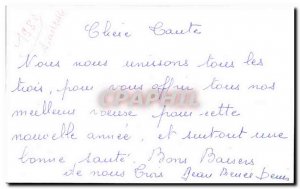 1983
Chère Tante
Nous nous unissons tous les
trois, pour vous offrir tous nos
meilleurs voeux pour cette
nouvelle année, et surtout une
bonne santé. Bons Baisers
de nous trois Jean Denis